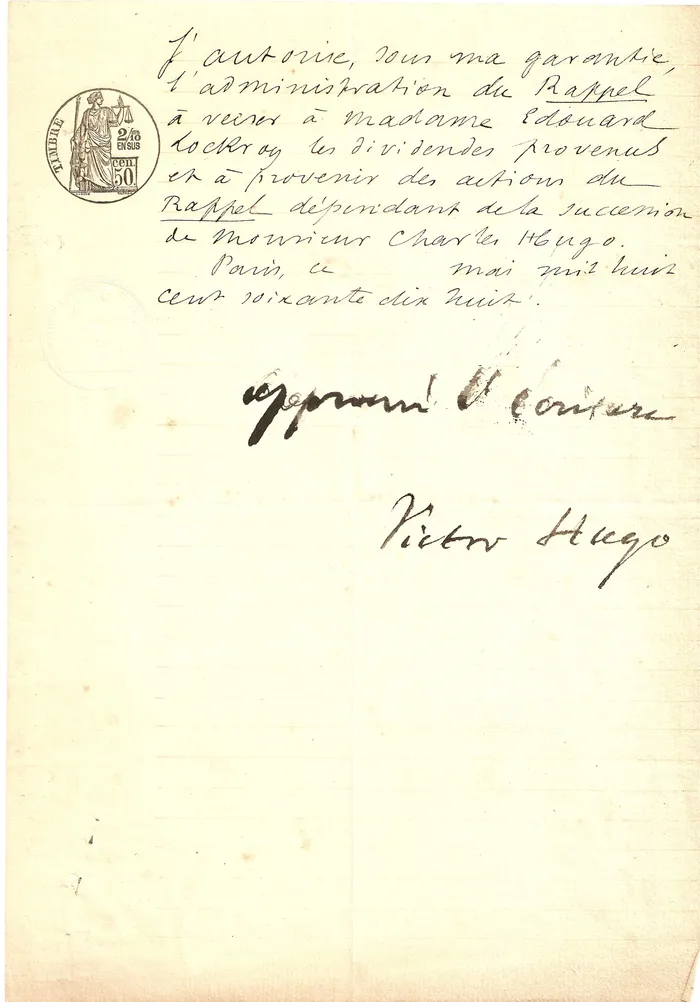 J'autorise, sous ma garantie,
l'administration du Rappel
à verser à Madame Edouard
Lockroy les dividendes provenus
et à provenir des actions du
Rappel dépendant de la succession
de Monsieur Charles Hugo.
Paris, ce mai mil huit
cent soixante dix huit.
TIMBRE
2/10
EN SUS
50 CEN.
approuvé l'écriture
Victor Hugo